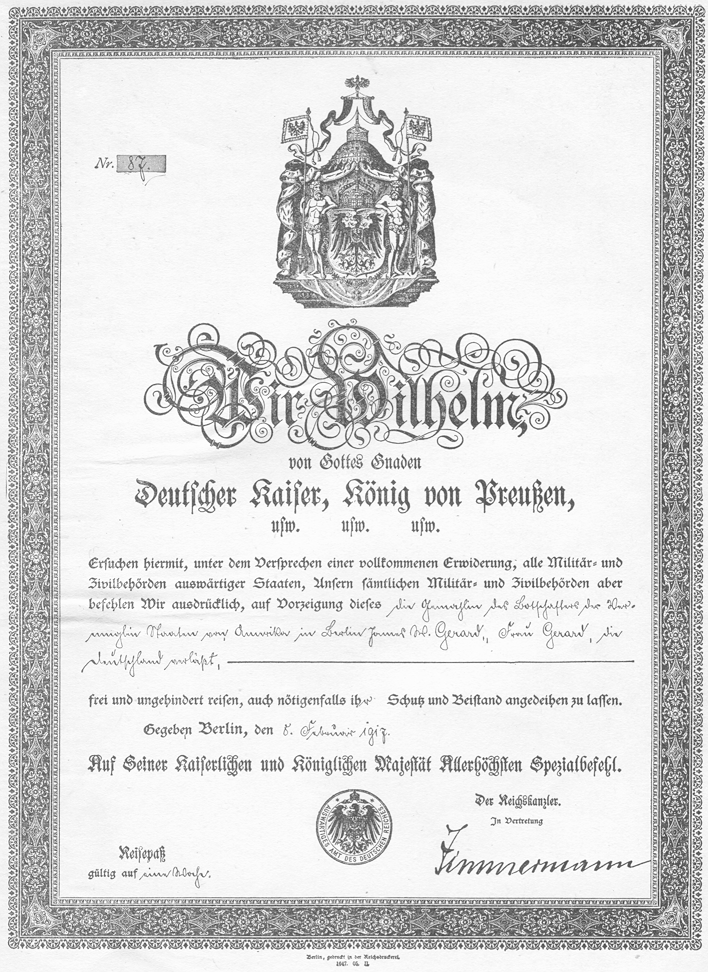 Nr. 87.
Wir Wilhelm,
von Gottes Gnaden
Deutscher Kaiser, König von Preußen,
usw. usw. usw.
Ersuchen hiermit, unter dem Versprechen einer vollkommenen Erwiderung, alle Militär- und
Zivilbehörden auswärtiger Staaten, Unsern sämtlichen Militär- und Zivilbehörden aber
befehlen Wir ausdrücklich, auf Vorzeigung dieses die Gemahlin des Botschafters der Ver-
einigten Staaten von Amerika in Berlin James W. Gerard, Frau Gerard, die
Deutschland verläßt,
frei und ungehindert reisen, auch nötigenfalls ihr Schutz und Beistand angedeihen zu lassen.
Gegeben Berlin, den 5. Februar 1917.
Auf Seiner Kaiserlichen und Königlichen Majestät Allerhöchsten Spezialbefehl.
Der Reichskanzler.
In Vertretung
Zimmermann
AUSWÄRTIGES AMT DES DEUTSCHEN REICHES
Reisepaß
gültig auf eine Woche.
Berlin, gedruckt in der Reichsdruckerei.
1647. 05. II.